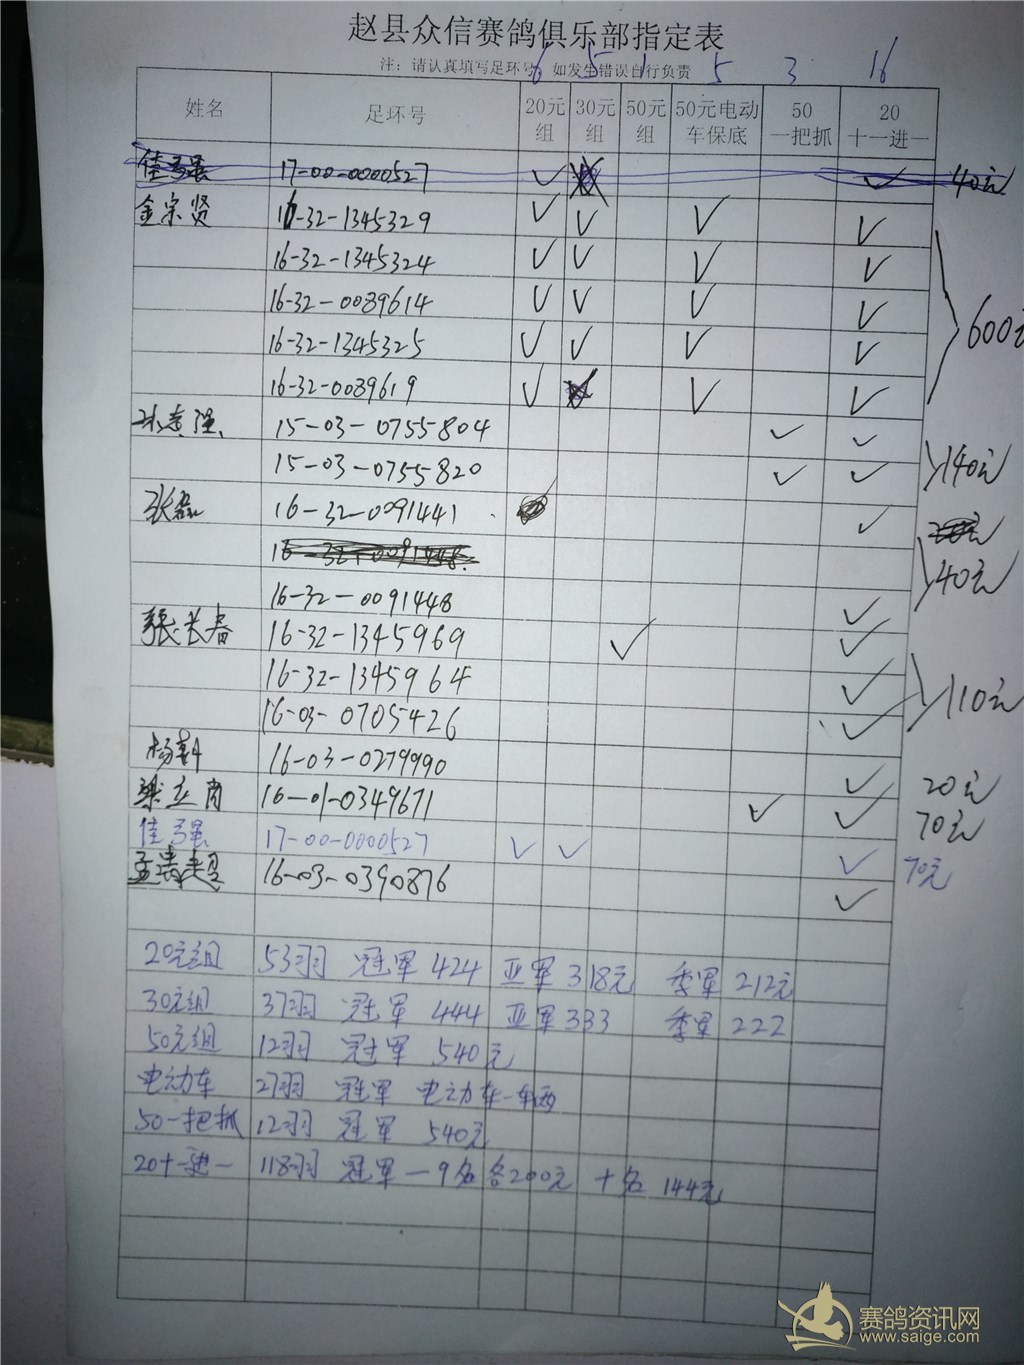 赵县众信赛鸽俱乐部指定表
注：请认真填写足环号，如发生错误自行负责
6 5 1 5 3 16
姓名 足环号 20元组 30元组 50元组 50元电动车保底 50一把抓 20十一进一
17-00-0000527 40元
金宗贤 16-32-1345329
16-32-1345324
16-32-0089614 600元
16-32-1345325
16-32-0089619
15-03-0755804
15-03-0755820 140元
张磊 16-32-0091441
16-32-0091448
16-32-0091448 40元
張长春 16-32-1345969
16-32-1345964
16-03-0705426 110元
16-03-0279990 20元
梁立肖 16-01-0349671 70元
佳强 17-00-0000527 70元
16-03-0390876
20元组 53羽 冠军 424 亚军 318元 季军 212元
30元组 37羽 冠军 444 亚军 333 季军 222
50元组 12羽 冠军 540元
电动车 27羽 冠军 电动车一车两
50一把抓 12羽 冠军 540元
20十一进一 118羽 冠军一9名 各200元 十名 144元
赛鸽资讯网
www.saige.com